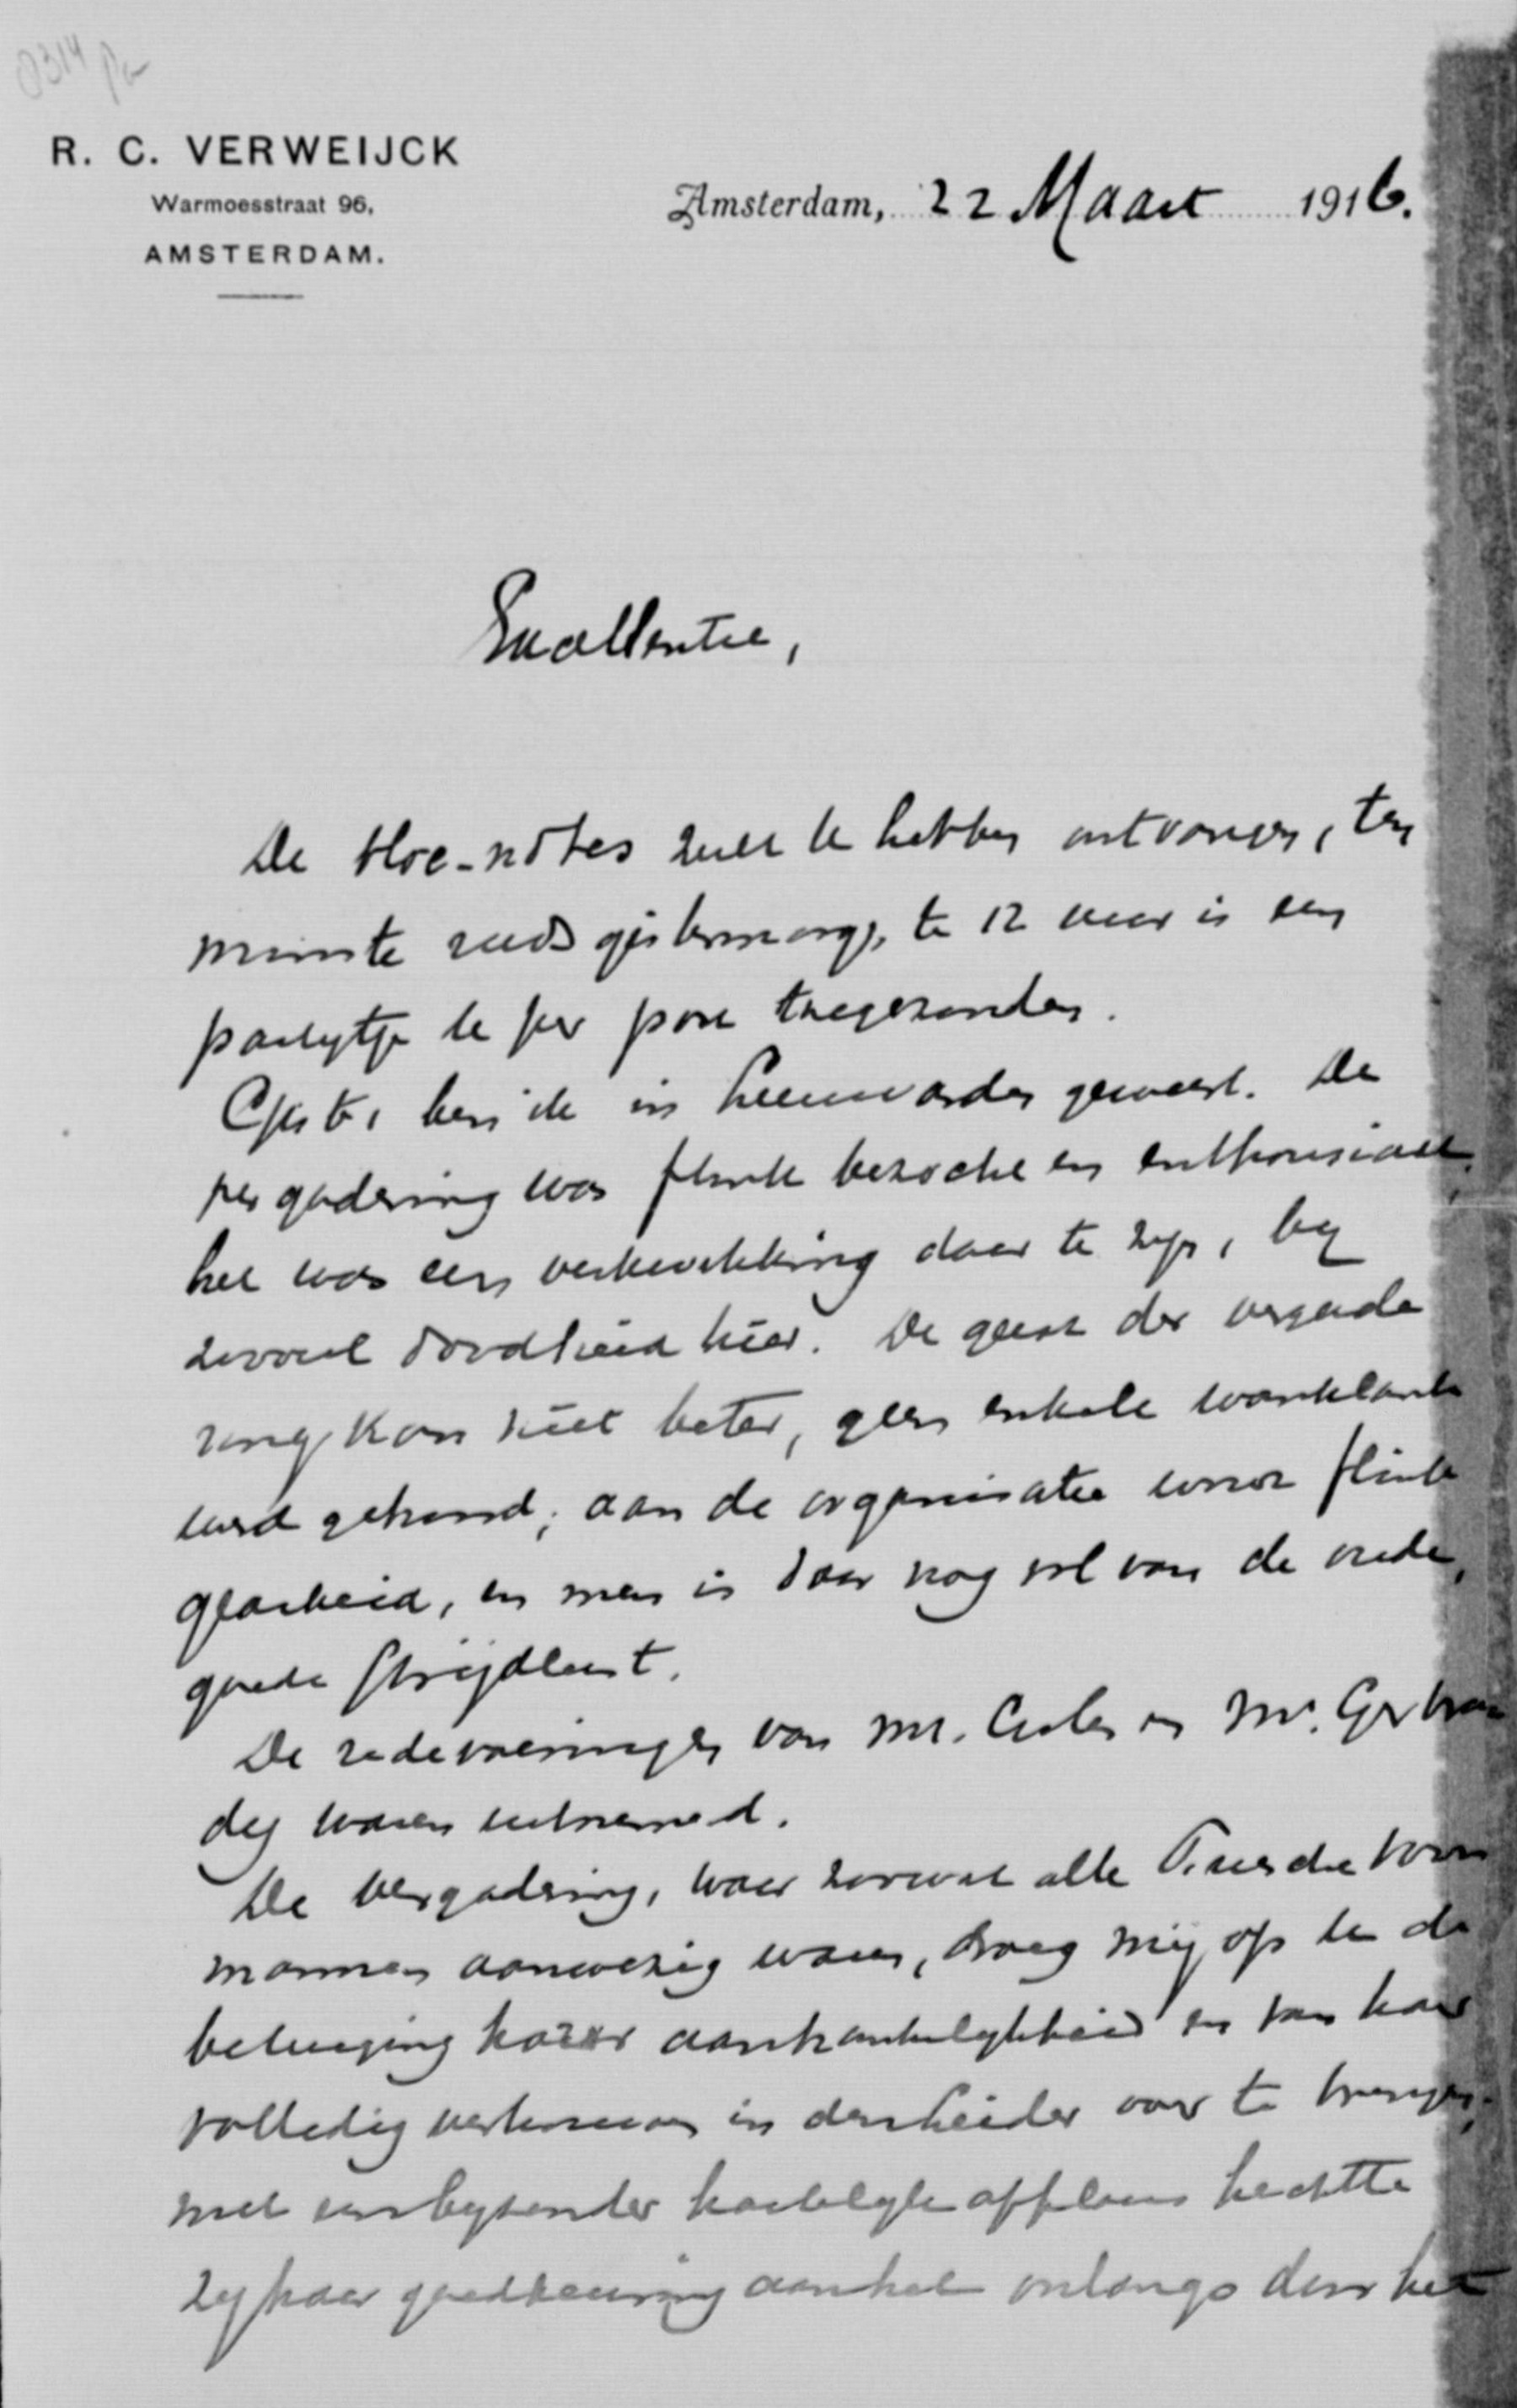 0314 Pa
R. C. VERWEIJCK
Warmoesstraat 96,
AMSTERDAM.
Amsterdam, 22 Maart 1916.
Excellentie,
De bloc-nôtes zult U hebben ontvangen, ten
minste reeds gistermorgen te 12 uur is een
partijtje U per post toegezonden.
Gister ben ik in Leeuwarden geweest. De
vergadering was flink bezocht en enthousiast.
het was een verkwikking daar te zijn, bij
zooveel doodheid hier. De geest der vergade
ring kon niet beter, geen enkele wanklank
werd gehoord; aan de organisatie wordt flink
gearbeid, en men is daar nog vol van de oude,
goede strijdlust.
De redevoeringen van Mr. en Mr. Gerbran
dij waren uitnemend.
De vergadering, waar zoowat alle Friesche voor
mannen aanwezig waren, droeg mij op U de
betuiging harer aanhankelijkheid en van haar
volledig vertrouwen in den leider over te brengen.
met een bijzonder hartelijk applaus hechtte
zij haar goedkeuring aan het onlangs door het